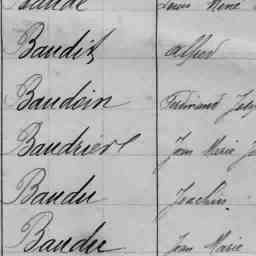 Baude Louis René
Baudit Alfred
Baudoin Ferdinand
Baudrier Jean Marie
Baudu Joachim
Baudu Jean Marie